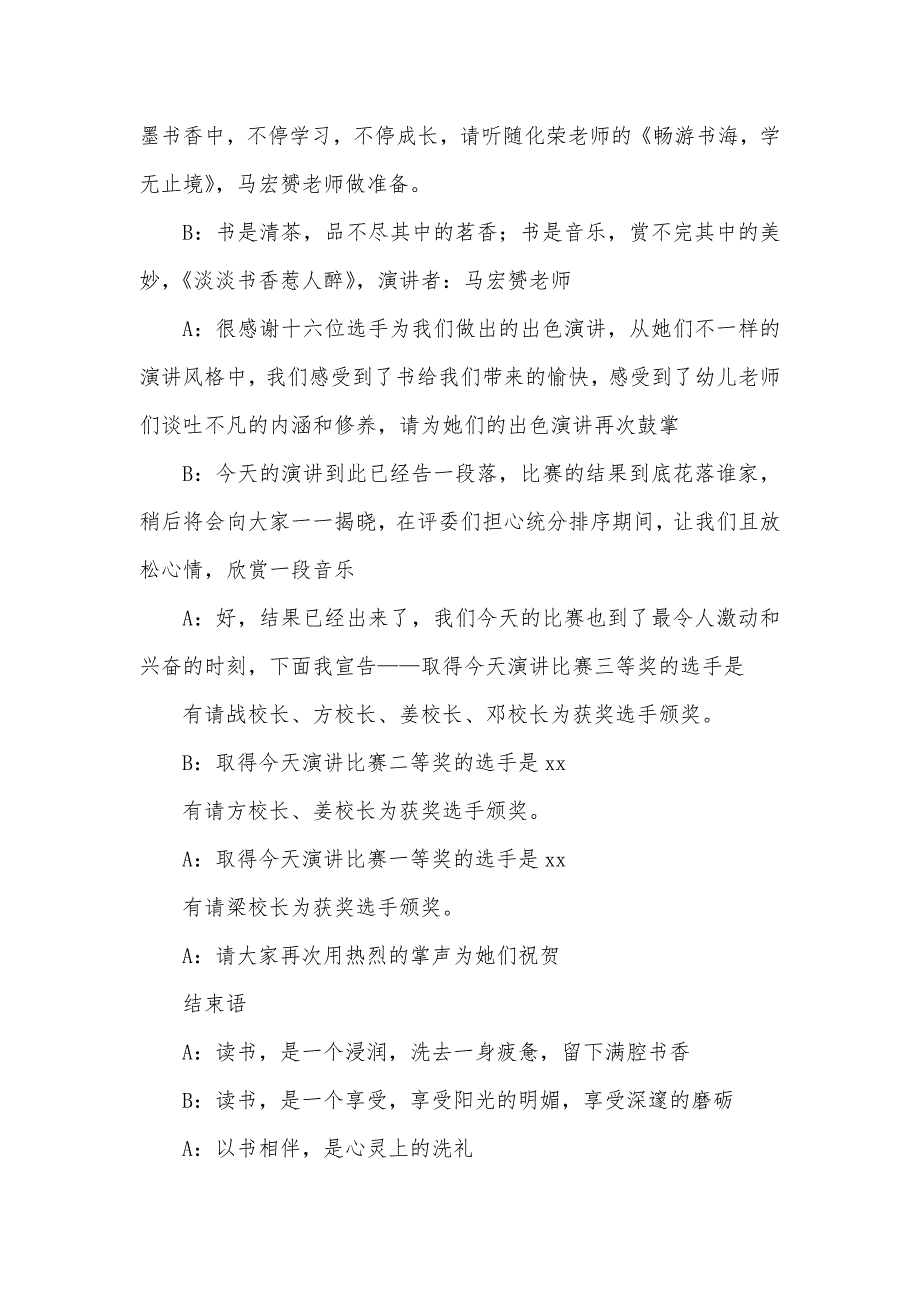 墨书香中，不停学习，不停成长，请听随化荣老师的《畅游书海，学
无止境》，马宏赟老师做准备。
B：书是清茶，品不尽其中的茗香；书是音乐，赏不完其中的美
妙，《淡淡书香惹人醉》，演讲者：马宏赟老师
A：很感谢十六位选手为我们做出的出色演讲，从她们不一样的
演讲风格中，我们感受到了书给我们带来的愉快，感受到了幼儿老师
们谈吐不凡的内涵和修养，请为她们的出色演讲再次鼓掌
B：今天的演讲到此已经告一段落，比赛的结果到底花落谁家，
稍后将会向大家一一揭晓，在评委们担心统分排序期间，让我们且放
松心情，欣赏一段音乐
A：好，结果已经出来了，我们今天的比赛也到了最令人激动和
兴奋的时刻，下面我宣告——取得今天演讲比赛三等奖的选手是
有请战校长、方校长、姜校长、邓校长为获奖选手颁奖。
B：取得今天演讲比赛二等奖的选手是 xx
有请方校长、姜校长为获奖选手颁奖。
A：取得今天演讲比赛一等奖的选手是 xx
有请梁校长为获奖选手颁奖。
A：请大家再次用热烈的掌声为她们祝贺
结束语
A：读书，是一个浸润，洗去一身疲惫，留下满腔书香
B：读书，是一个享受，享受阳光的明媚，享受深邃的磨砺
A：以书相伴，是心灵上的洗礼